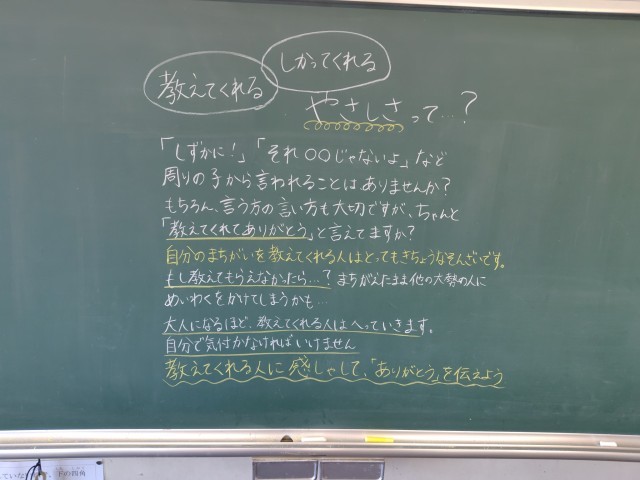 しかってくれる
教えてくれる
やさしさって…?
「しずかに!」「それ○○じゃないよ」など
周りの子から言われることはありませんか?
もちろん、言う方の言い方も大切ですが、ちゃんと
「教えてくれてありがとう」と言えてますか?
自分のまちがいを教えてくれる人はとてもきちょうなそんざいです。
もし教えてもらえなかったら…? まちがえたまま他の大勢の人に
めいわくをかけてしまうかも…
大人になるほど、教えてくれる人はへっていきます。
自分で気付かなければいけません
教えてくれる人に感しゃして、「ありがとう」を伝えよう